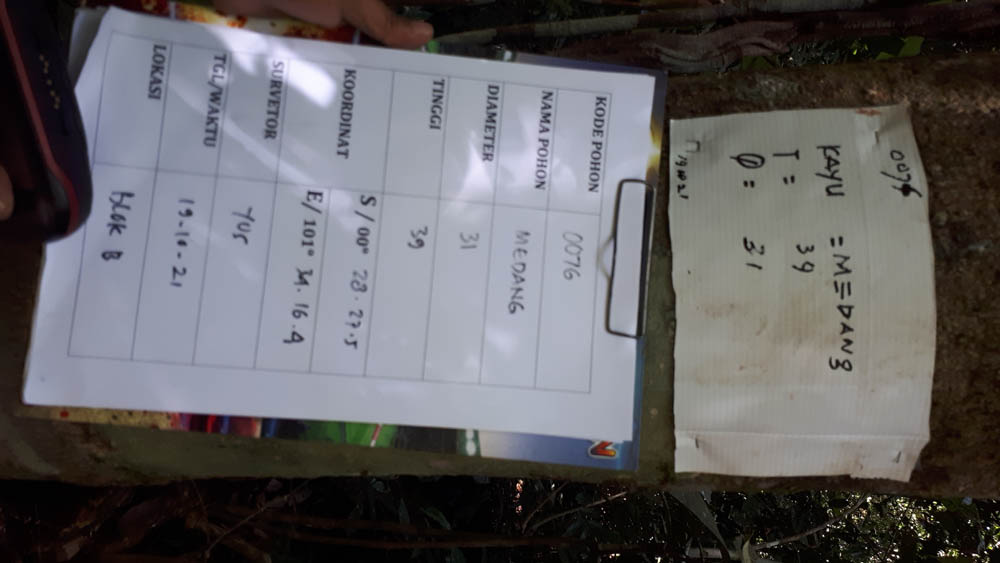 0076
KAYU = MEDANG
T = 39
Ø = 31
19 10 21
N
KODE POHON 0076
NAMA POHON MEDANG
DIAMETER 31
TINGGI 39
KOORDINAT S / 00° 28.27.5
E/ 101° 34.16.4
SURVETOR YUS
TGL/WAKTU 19-10-21
LOKASI BLOK B